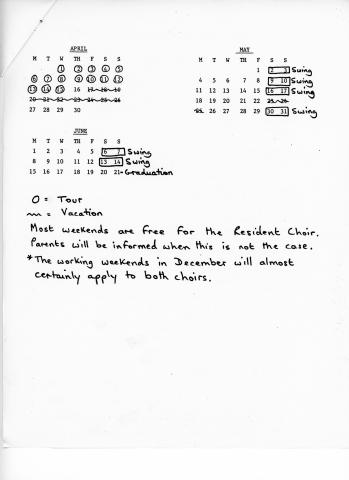 APRIL
M T W TH F S S
1 2 3 4 5
6 7 8 9 10 11 12
13 14 15 16 17 18 19
20 21 22 23 24 25 26
27 28 29 30
MAY
M T W TH F S S
1 2 3 Swing
4 5 6 7 8 9 10 Swing
11 12 13 14 15 16 17 Swing
18 19 20 21 22 23 24
25 26 27 28 29 30 31 Swing
JUNE
M T W TH F S S
1 2 3 4 5 6 7 Swing
8 9 10 11 12 13 14 Swing
15 16 17 18 19 20 21 - Graduation
O = Tour
~~ = Vacation
Most weekends are free for the Resident Choir.
Parents will be informed when this is not the case.
* The working weekends in December will almost
certainly apply to both choirs.